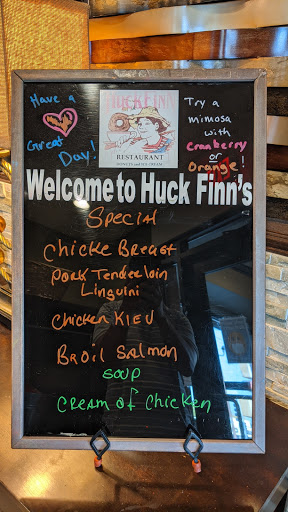 Have a
Great
Day!
HUCK FINN
RESTAURANT
DONUTS and ICE CREAM
Try a
mimosa
with
cranberry
or
orange!
Welcome to Huck Finn's
Special
Chicke Breast
Pork Tenderloin
Linguini
Chicken KIEV
Broil Salmon
SOUP
CREAM of Chicken